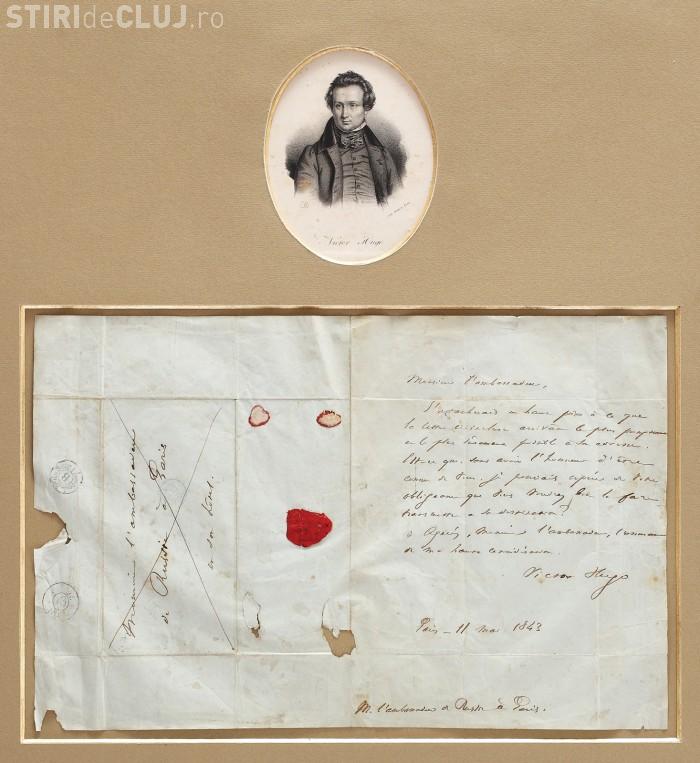 STIRIdeCLUJ.ro
Victor Hugo
Monsieur l'ambassadeur
de Russie à Paris
en son hôtel.
Monsieur l'ambassadeur,
J'attacherais un haut prix à ce que
la lettre ci-incluse arrivât le plus
et le plus sûrement possible à son adresse.
Est-ce que, sans avoir l'honneur d'être
connu de vous, je pourrais espérer de votre
obligeance que vous voudrez bien la faire
transmettre à sa destination?
Agréez, Monsieur l'ambassadeur, l'assurance
de ma haute considération.
Victor Hugo
Paris - 11 mai 1843
M. l'ambassadeur de Russie à Paris.